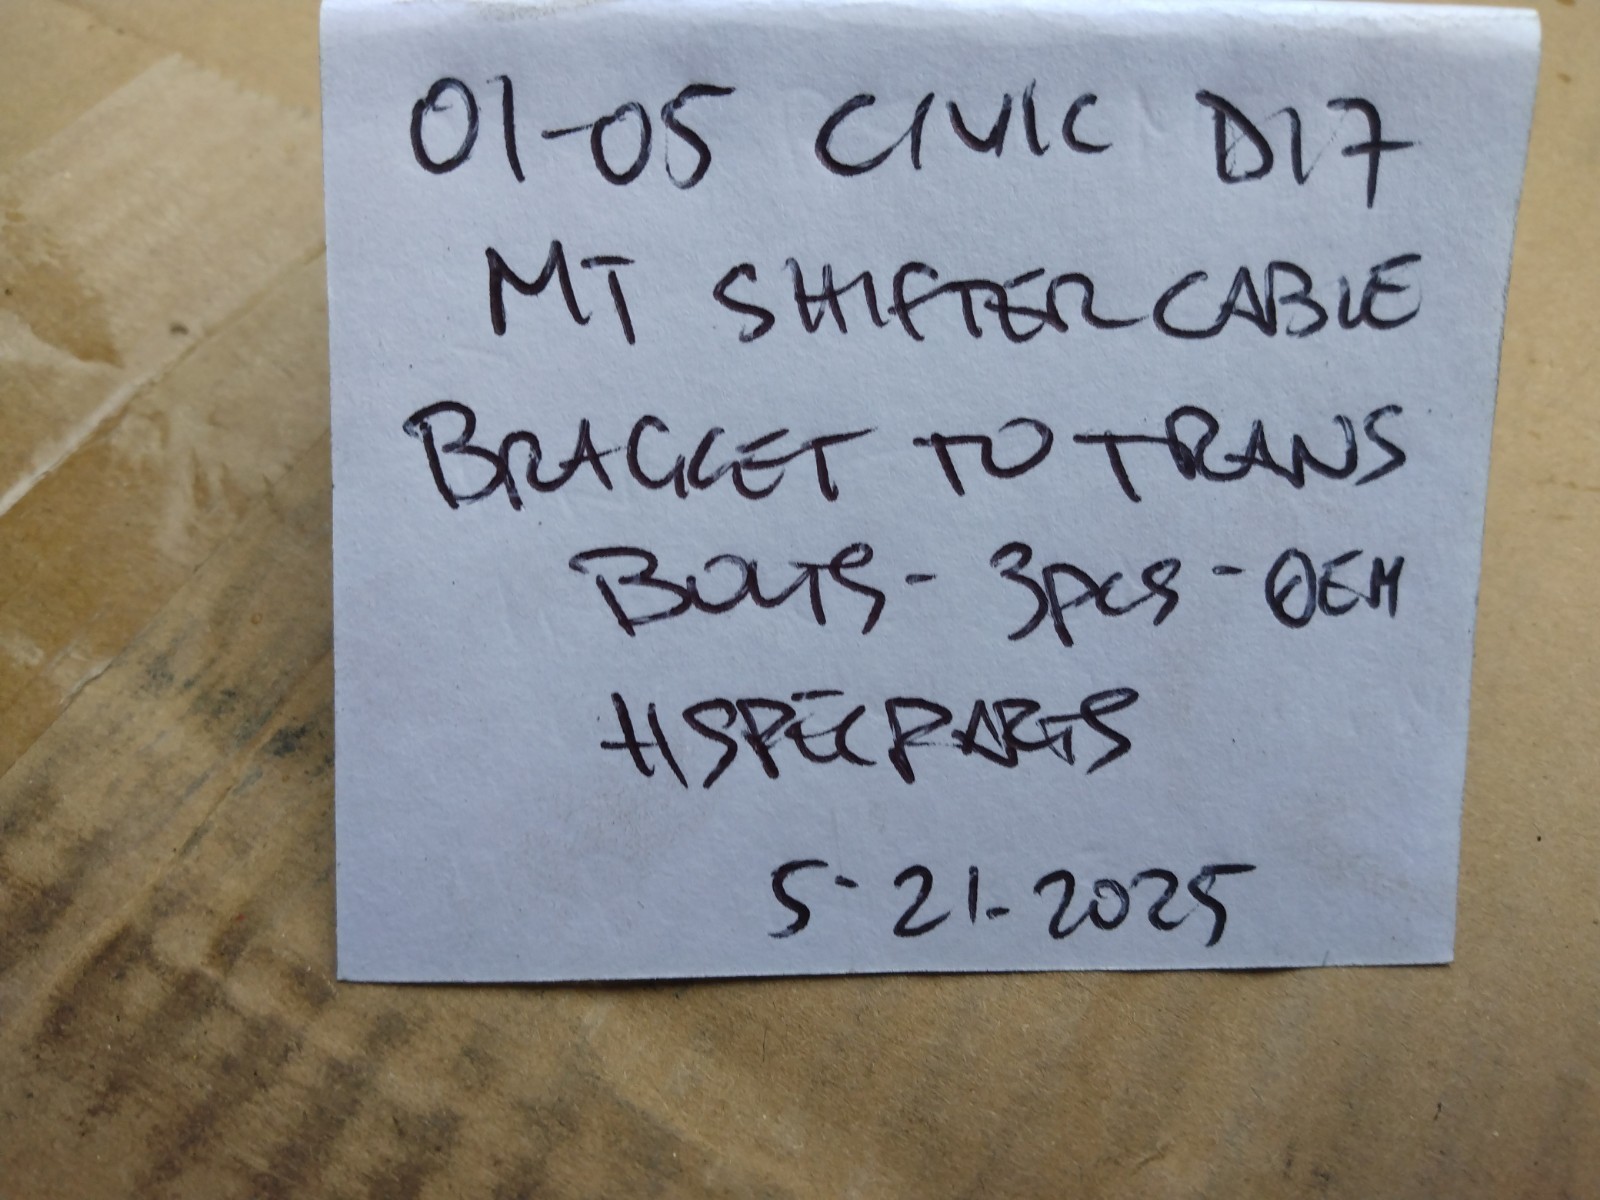 01-05 CIVIC D17
MT SHIFTER CABLE
BRACKET TO TRANS
BOLTS - 3pcs - OEM
HSPECPARTS
5-21-2025